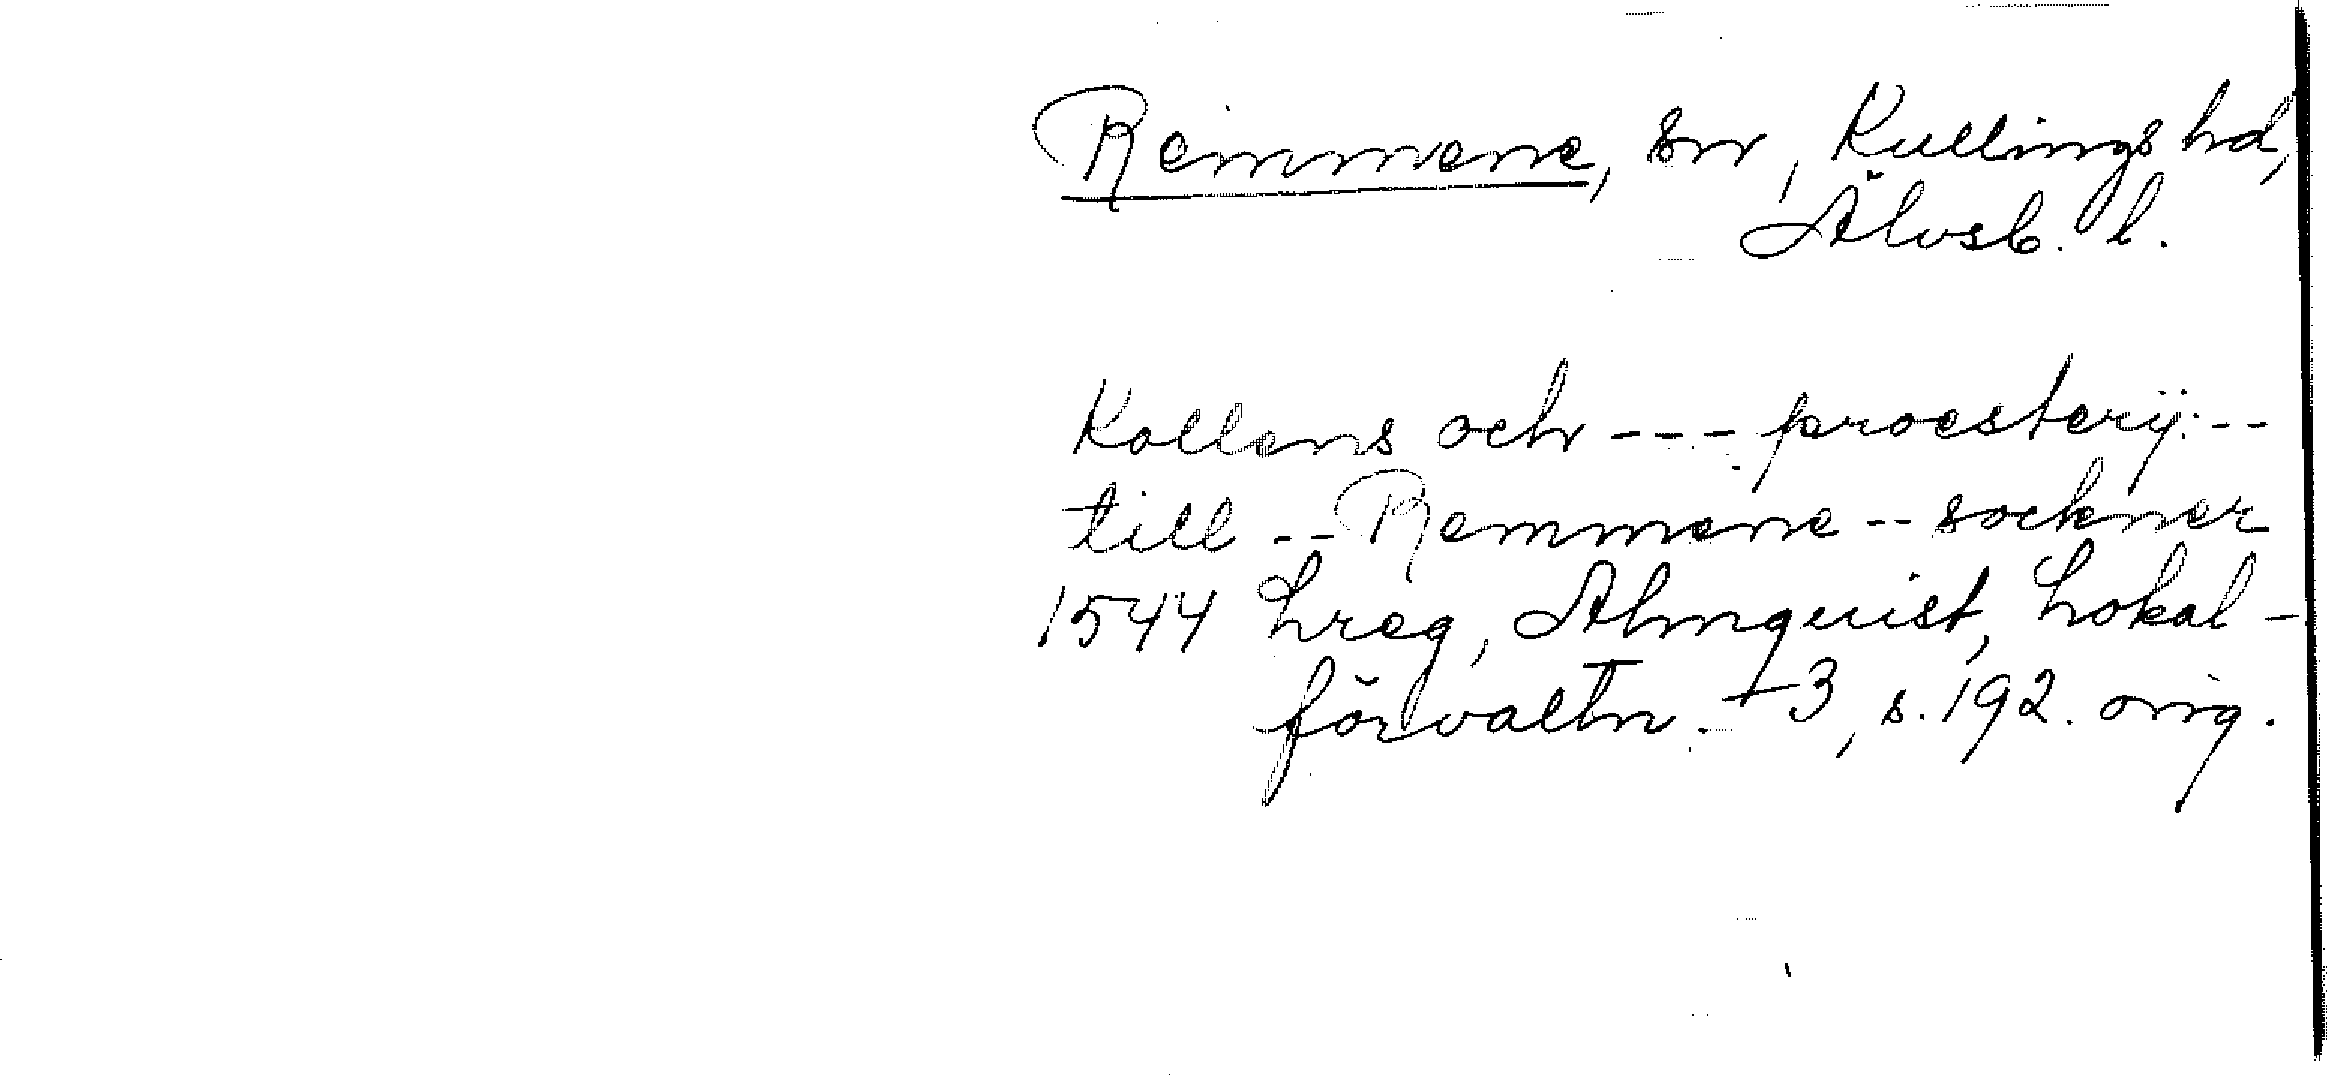 Remmene, sn, Kullings hd,
Älvsb. l.
Kallens och --- proesterij: --
till -- Remmene -- sockner
1544 Lreg, Almquist, Lokal-
förvaltn. +3, s. 192. orig.